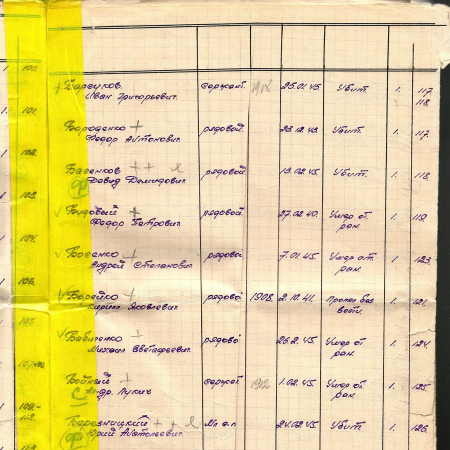 100.
Барсуков
Иван Григорьевич.
сержант.
1918
25.01.45
Убит.
1.
117
118
101.
Бороденко
Федор Антонович
рядовой.
23.12.43.
Убит.
1.
117.
102.
Базенков
Давид Демидович
рядовой.
13.02.45
Убит.
1.
118.
103.
Будовый
Федор Петрович
рядовой.
27.02.40.
Умер от
ран.
1.
119.
104.
Босенко
Андрей Степанович
рядово
7.01.45.
Умер от.
ран.
1.
123.
106.
Борейко
Кирилл Яковлевич
рядово
1908.
2.10.41.
Пропал без
вести.
1.
121.
105
Бабиченко
Михаил Евстафьевич
рядово
26.2.45
Умер от
ран.
1.
124.
Бойный
Ал-др. Лукич
сержан
1912
1.02.45
Умер от
ран.
1.
125.
Березницкий
Юрий Анатольевич.
Мл. л-т
24.02.45
Убит.
1.
126.